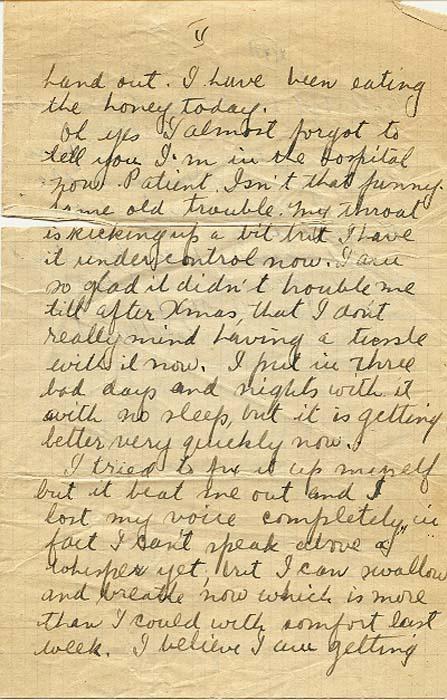 V
hand out. I have been eating
the honey today.
Oh yes I almost forgot to
tell you I'm in the Hospital
now. Patient. Isn't that funny.
Same old trouble. My throat
is kicking up a bit but I have
it under control now. I am
so glad it didn't trouble me
till after Xmas, that I don't
really mind having a tussle
with it now. I put in three
bad days and nights with it
with no sleep, but it is getting
better very quickly now.
I tried to fix it up myself
but it beat me out and I
lost my voice completely, in
fact I can't speak above a
whisper yet, but I can swallow
and breathe now which is more
than I could with comfort last
week. I believe I am getting